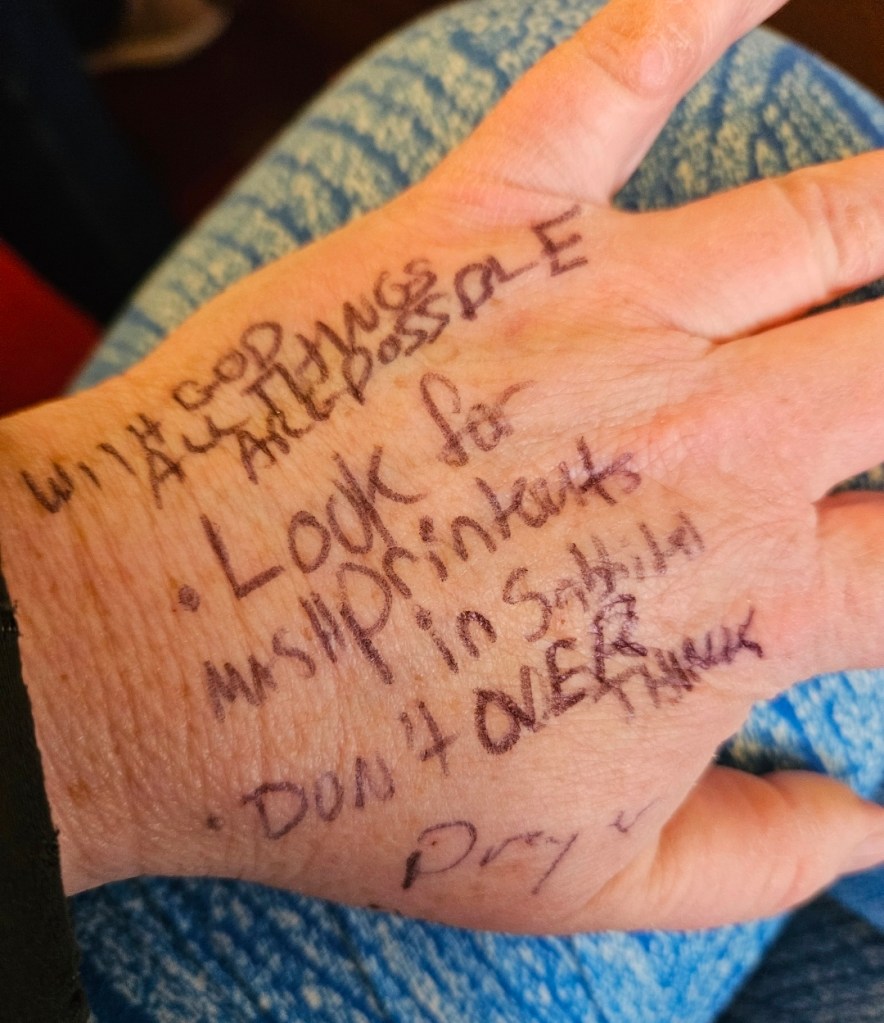 WITH GOD
ALL THINGS
ARE POSSBLE
• Look for
MASH printouts
in
• DON't OVER
THINK
Prayer